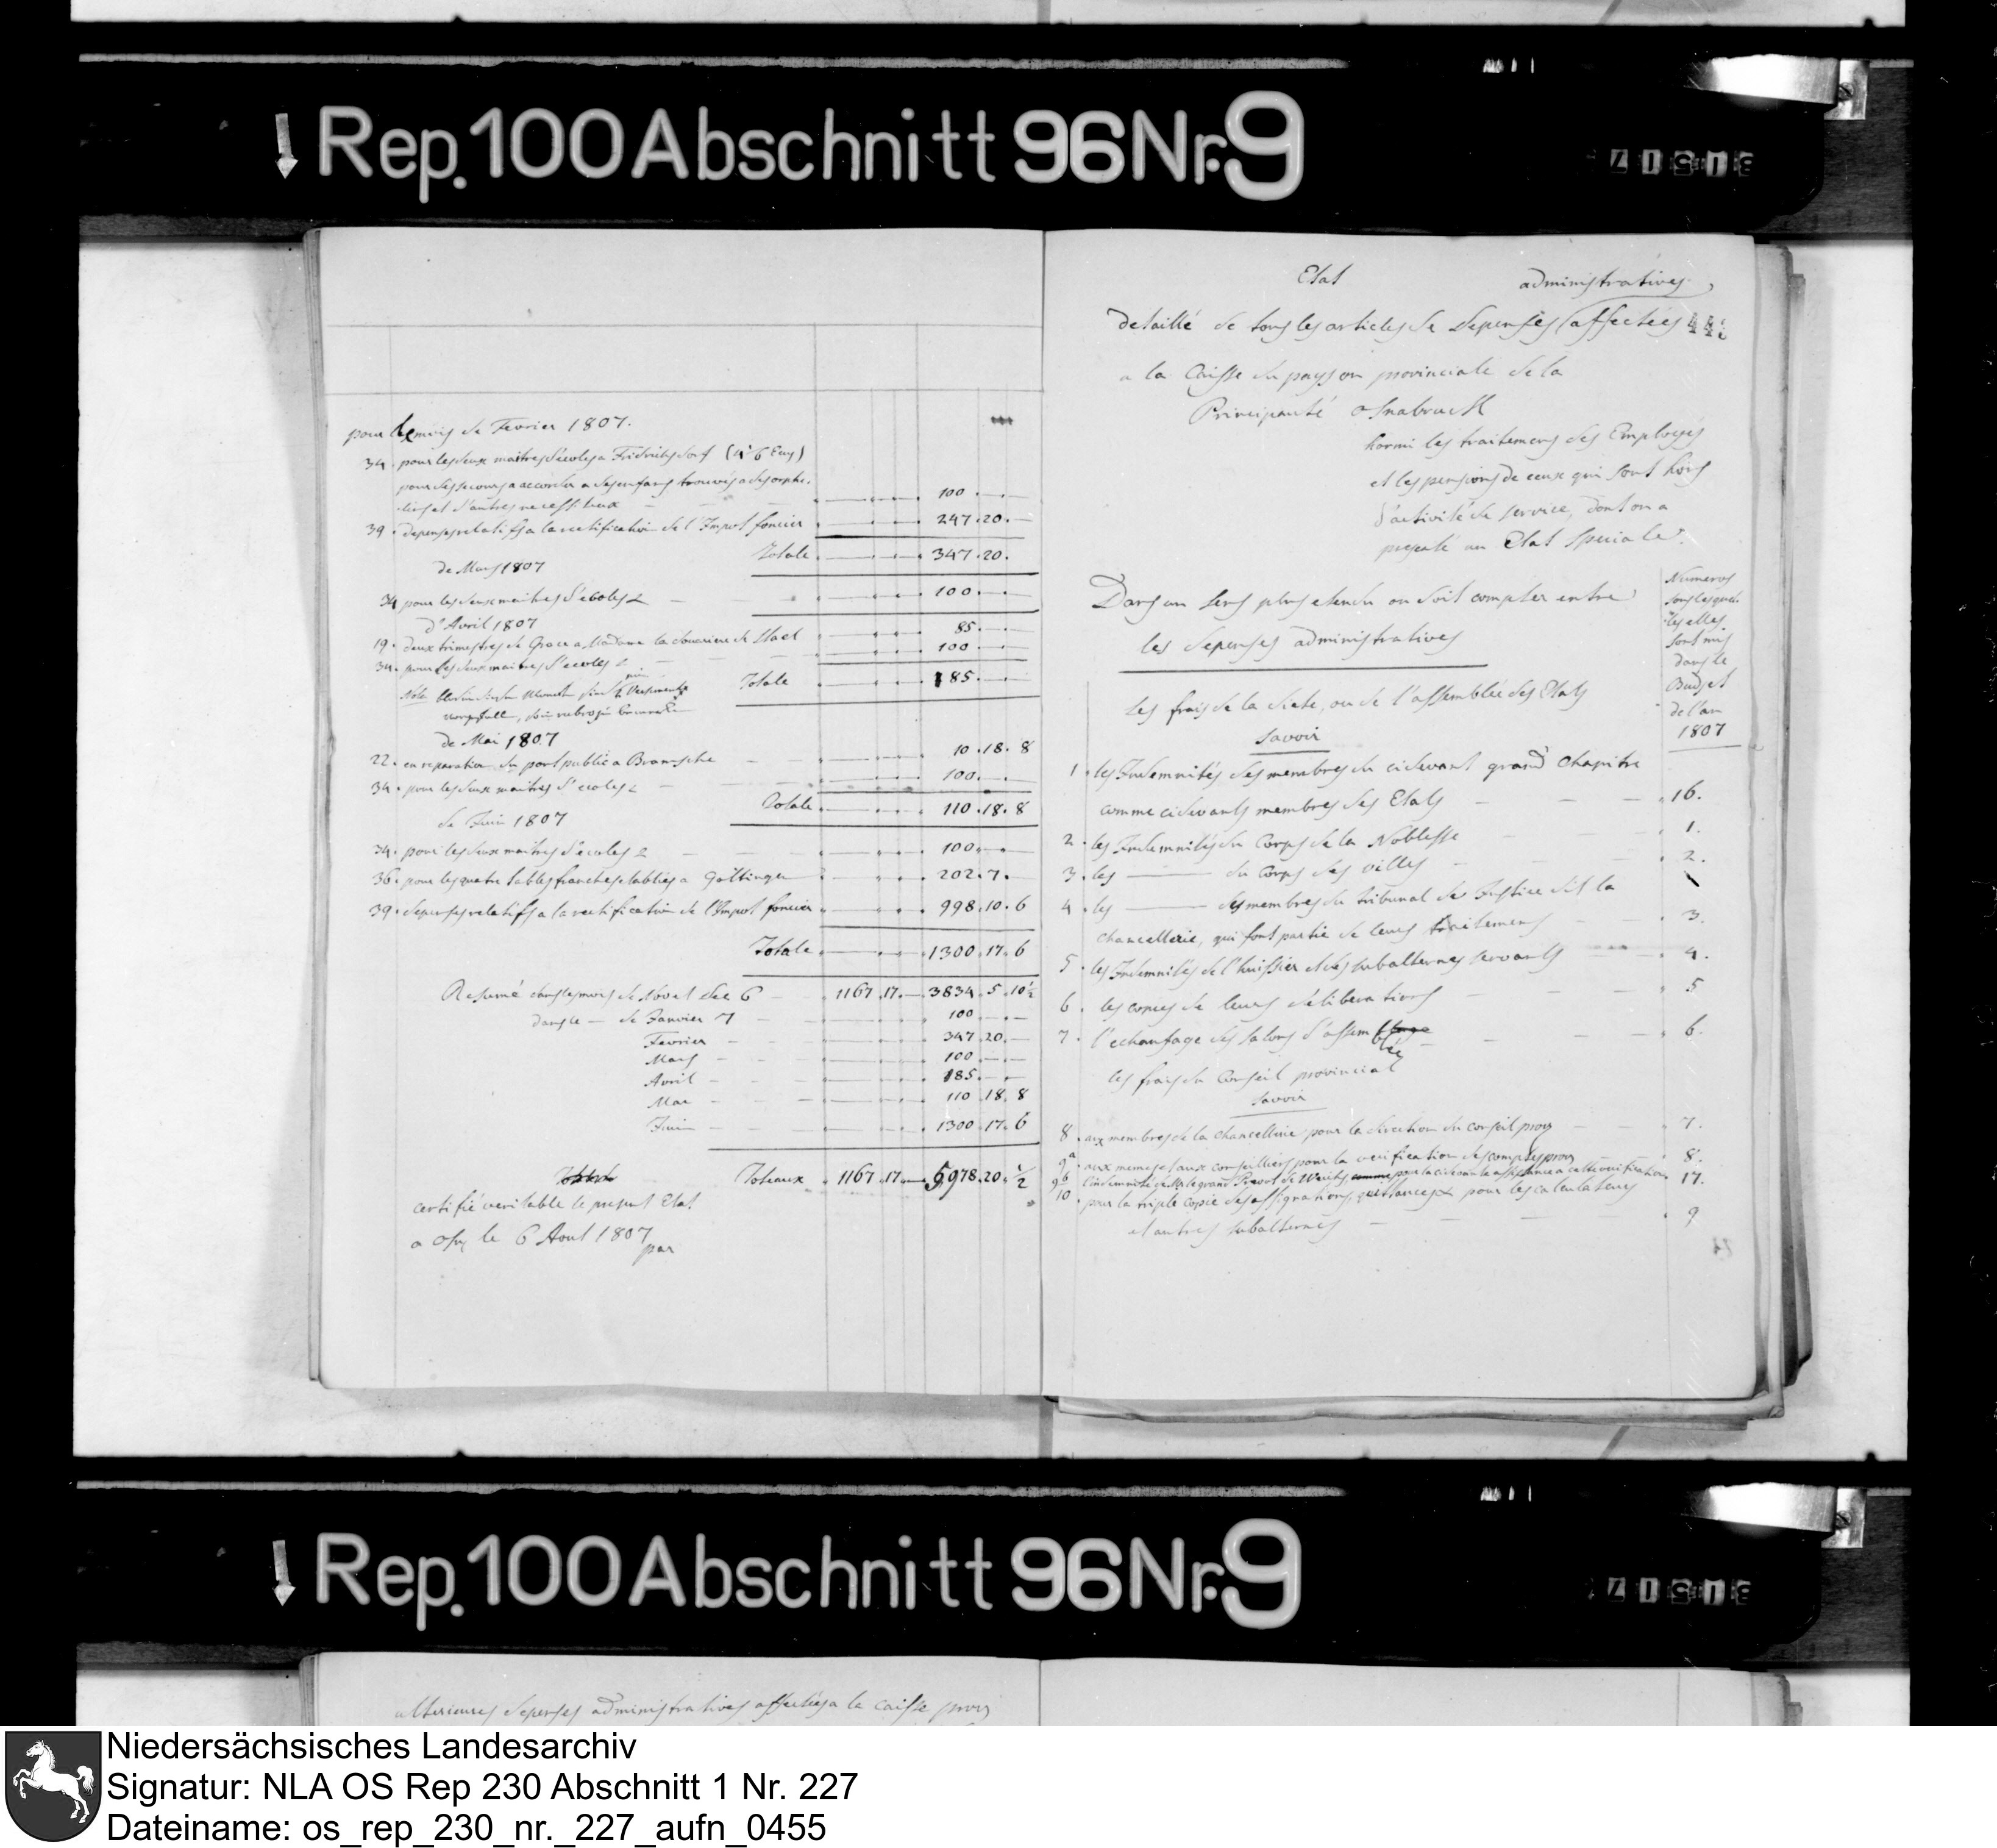 Rep. 100 Abschnitt 96 Nr. 9
pour le mois de Fevrier 1807.
34. pour les deux maitres d'ecoles a Fridrichsdorf
pour des secours a accorder a des enfans trouvés a des orphe-
-lins et d'autres necessiteux 100.
39. depenses relatifs a la rectification de l'Impot foncier 247. 20.
Totale 347. 20.
de Mars 1807
34 pour les deux maitres d'ecoles 100.
d'Avril 1807
19. deux trimestres de Grace a Madame la douariere de Stael 85.
34. pour les deux maitres d'ecoles 100.
Nota
Totale 185.
de Mai 1807
22. en reparation du pont public a Bramsche 10. 18. 8
34. pour les deux maitres d'ecoles 100.
Totale 110. 18. 8
de Juin 1807
34. pour les deux maitres d'ecoles 100.
36. pour les quatre tables franches etablies a Göttingen 202. 7.
39. depenses relatifs a la rectification de l'Impot foncier 998. 10. 6
Totale 1300. 17. 6
Resumé dans les mois de Novel dec 6 1167. 17. 3834. 5. 10 1/2
dans le — de Janvier 7 100
Fevrier 347. 20.
Mars 100
Avril 185.
Mai 110. 18. 8
Juin 1300. 17. 6
Totaux 1167. 17. 5978. 20. 1/2
certifié veritable le present Etat
a Osn le 6 Aout 1807
par
Etat administratives
detaillé de tous les articles de depenses affectées
a la Caisse du pays ou provinciale de la
Principauté Osnabruck
hormi les traitemens des Employés
et les pensions de ceux qui sont hors
d'activité de service, dont on a
presenté un Etat speciale.
Dans un sens plus etendu on doit compter entre
les depenses administratives
Numeros
sous lesquel-
-les elles
sont mis
dans le
Budjet
de l'an
1807
les frais de la diete, ou de l'assemblée des Etats
savoir
1. les Indemnités des membres du cidevant grand Chapitre
comme cidevants membres des Etats 16.
2. les Indemnités du Corps de la Noblesse 1.
3. les — du Corps des villes 2.
4. les — des membres du tribunal de Justice dit la
Chancellerie, qui font partie de leurs traitemens 3.
5. les Indemnités de l'huissier et des subalternes servants 4.
6. les copies de leurs déliberations 5
7. l'echaufage des salons d'assemblée 6.
les frais du Conseil provincial
savoir
8. aux membres de la Chancellerie pour la direction du conseil prov 7.
9a. aux memes et aux conseilliers pour la verification des comptes prov 8.
9b 17.
10. pour la triple copie des assignations, quittances & pour les calculateurs
et autres subalternes 9
Rep. 100 Abschnitt 96 Nr. 9
ulterieures depenses administratives affectées a la caisse prov
Niedersächsisches Landesarchiv
Signatur: NLA OS Rep 230 Abschnitt 1 Nr. 227
Dateiname: os_rep_230_nr._227_aufn_0455